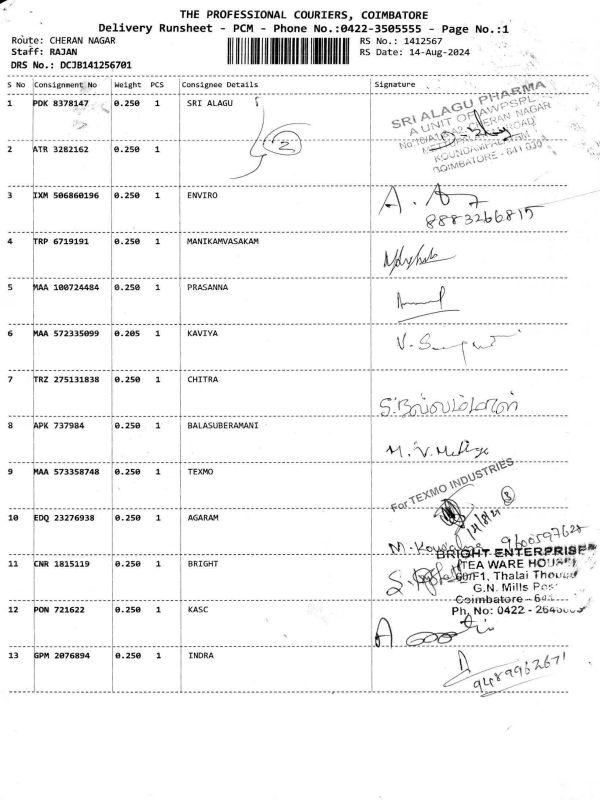 THE PROFESSIONAL COURIERS, COIMBATORE
Delivery Runsheet - PCM - Phone No.:0422-3505555 - Page No.:1
Route: CHERAN NAGAR RS No.: 1412567
Staff: RAJAN RS Date: 14-Aug-2024
DRS No.: DCJB141256701
S No Consignment No Weight PCS Consignee Details Signature
1 PDK 8378147 0.250 1 SRI ALAGU
SRI ALAGU PHARMA
A UNIT OF AWPSPL
CHERAN NAGAR
KOUNDAMPALAYAM
COIMBATORE - 641 030
2 ATR 3282162 0.250 1 2
3 IXM 506860196 0.250 1 ENVIRO
8883266815
4 TRP 6719191 0.250 1 MANIKAMVASAKAM
5 MAA 100724484 0.250 1 PRASANNA
6 MAA 572335099 0.205 1 KAVIYA
7 TRZ 275131838 0.250 1 CHITRA
8 APK 737984 0.250 1 BALASUBERAMANI
9 MAA 573358748 0.250 1 TEXMO
For TEXMO INDUSTRIES
10 EDQ 23276938 0.250 1 AGARAM
9600597628
11 CNR 1815119 0.250 1 BRIGHT
BRIGHT ENTERPRISE
TEA WARE HOUSE
60/F1, Thalai Thottam
G.N. Mills Post
Coimbatore - 641
Ph, No: 0422 -
12 PON 721622 0.250 1 KASC
13 GPM 2076894 0.250 1 INDRA
9489962671